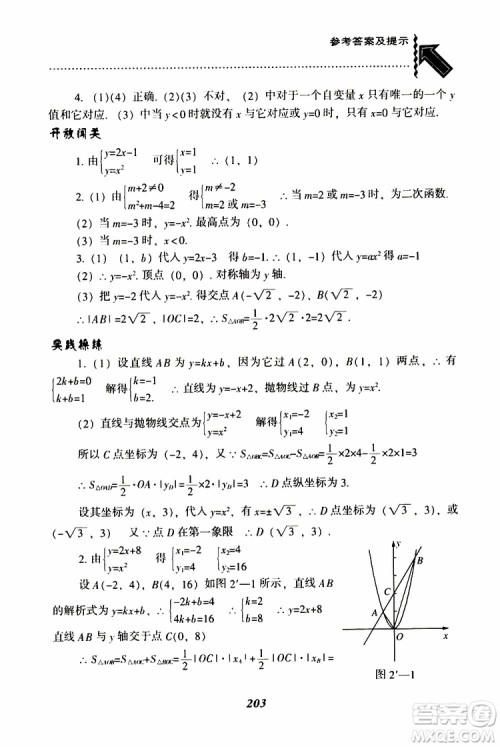 参考答案及提示
4. (1)(4) 正确. (2)(3) 不对, (2) 中对于一个自变量 x 只有唯一的一个 y
值和它对应. (3) 中当 y<0 时就没有 x 与它对应或 y>0 时, 只有 x 与它对应.
开放闯关
1. 由{y=2x-1 y=x² 可得{x=1 y=1 ∴ (1, 1)
2. (1) 由{m+2≠0 m²+m-4=2 得{m≠-2 m=2或m=-3 ∴ 当 m=2 或 m=-3 时, 为二次函数.
(2) 当 m=-3 时, y=-x². 最高点为 (0, 0).
(3) 当 m=-3 时, x<0.
3. (1) (1, b) 代入 y=2x-3 得 b=-1 把 (1, -1) 代入 y=ax² 得 a=-1
(2) ∴ y=-x². 顶点 (0, 0). 对称轴为 y 轴.
(3) 把 y=-2 代入 y=-x². 得交点 A(-√2, -2), B(√2, -2)
∴ |AB|=2√2, |OC|=2. ∴ S△AOB=1/2·2√2·2=2√2.
实践操练
1. (1) 设直线 AB 为 y=kx+b, 因为它过 A(2, 0), B(1, 1) 两点, ∴ 有
{2k+b=0 k+b=1 解得{k=-1 b=2. ∴ 直线为 y=-x+2, 抛物线过 B 点, ∴ 为 y=x².
(2) 直线与抛物线交点为{y=-x+2 y=x² 解得{x₁=-2 y₁=4 {x₂=1 y₂=1
所以 C 点坐标为 (-2, 4), ∴ S△OBC=S△AOC-S△AOB=1/2×2×4-1/2×2×1=3
∴ S△OAD=1/2·OA·|y_D|=1/2×2×|y_D|=3. ∴ D 点纵坐标为 3.
设其坐标为 (x, 3), 代入 y=x², 有 x=±√3, ∴ D 点坐标为 (√3, 3) 或
(-√3, 3) 又∵ 点 D 在第一象限 ∴ D 为 (√3, 3).
2. 由{y=2x+8 y=x² 得{x₁=-2 y₁=4 {x₂=4 y₂=16
设 A(-2, 4), B(4, 16) 如图 2′-1, ∴ 设直线 AB
的解析式为 y=kx+b {-2k+b=4 4k+b=16 ∴ {k=2 b=8 ∴ y=2x+8.
直线 AB 与 y 轴交于点 C(0, 8)
∴ S△AOB=S△AOC+S△BOC=1/2|OC|·|x_A|+1/2|OC|·|x_B|
y
B
C
A
O
x
图 2′-1
203